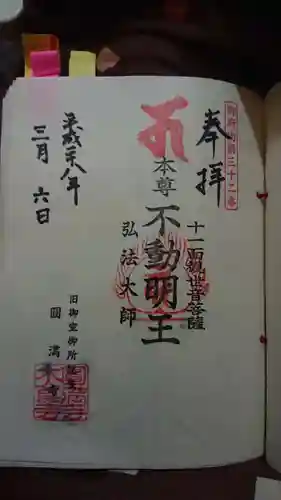 奉拝
十一面観世音菩薩
本尊 不動明王
弘法大師
平成二十八年
三月 六日
旧御室御所
圓満寺